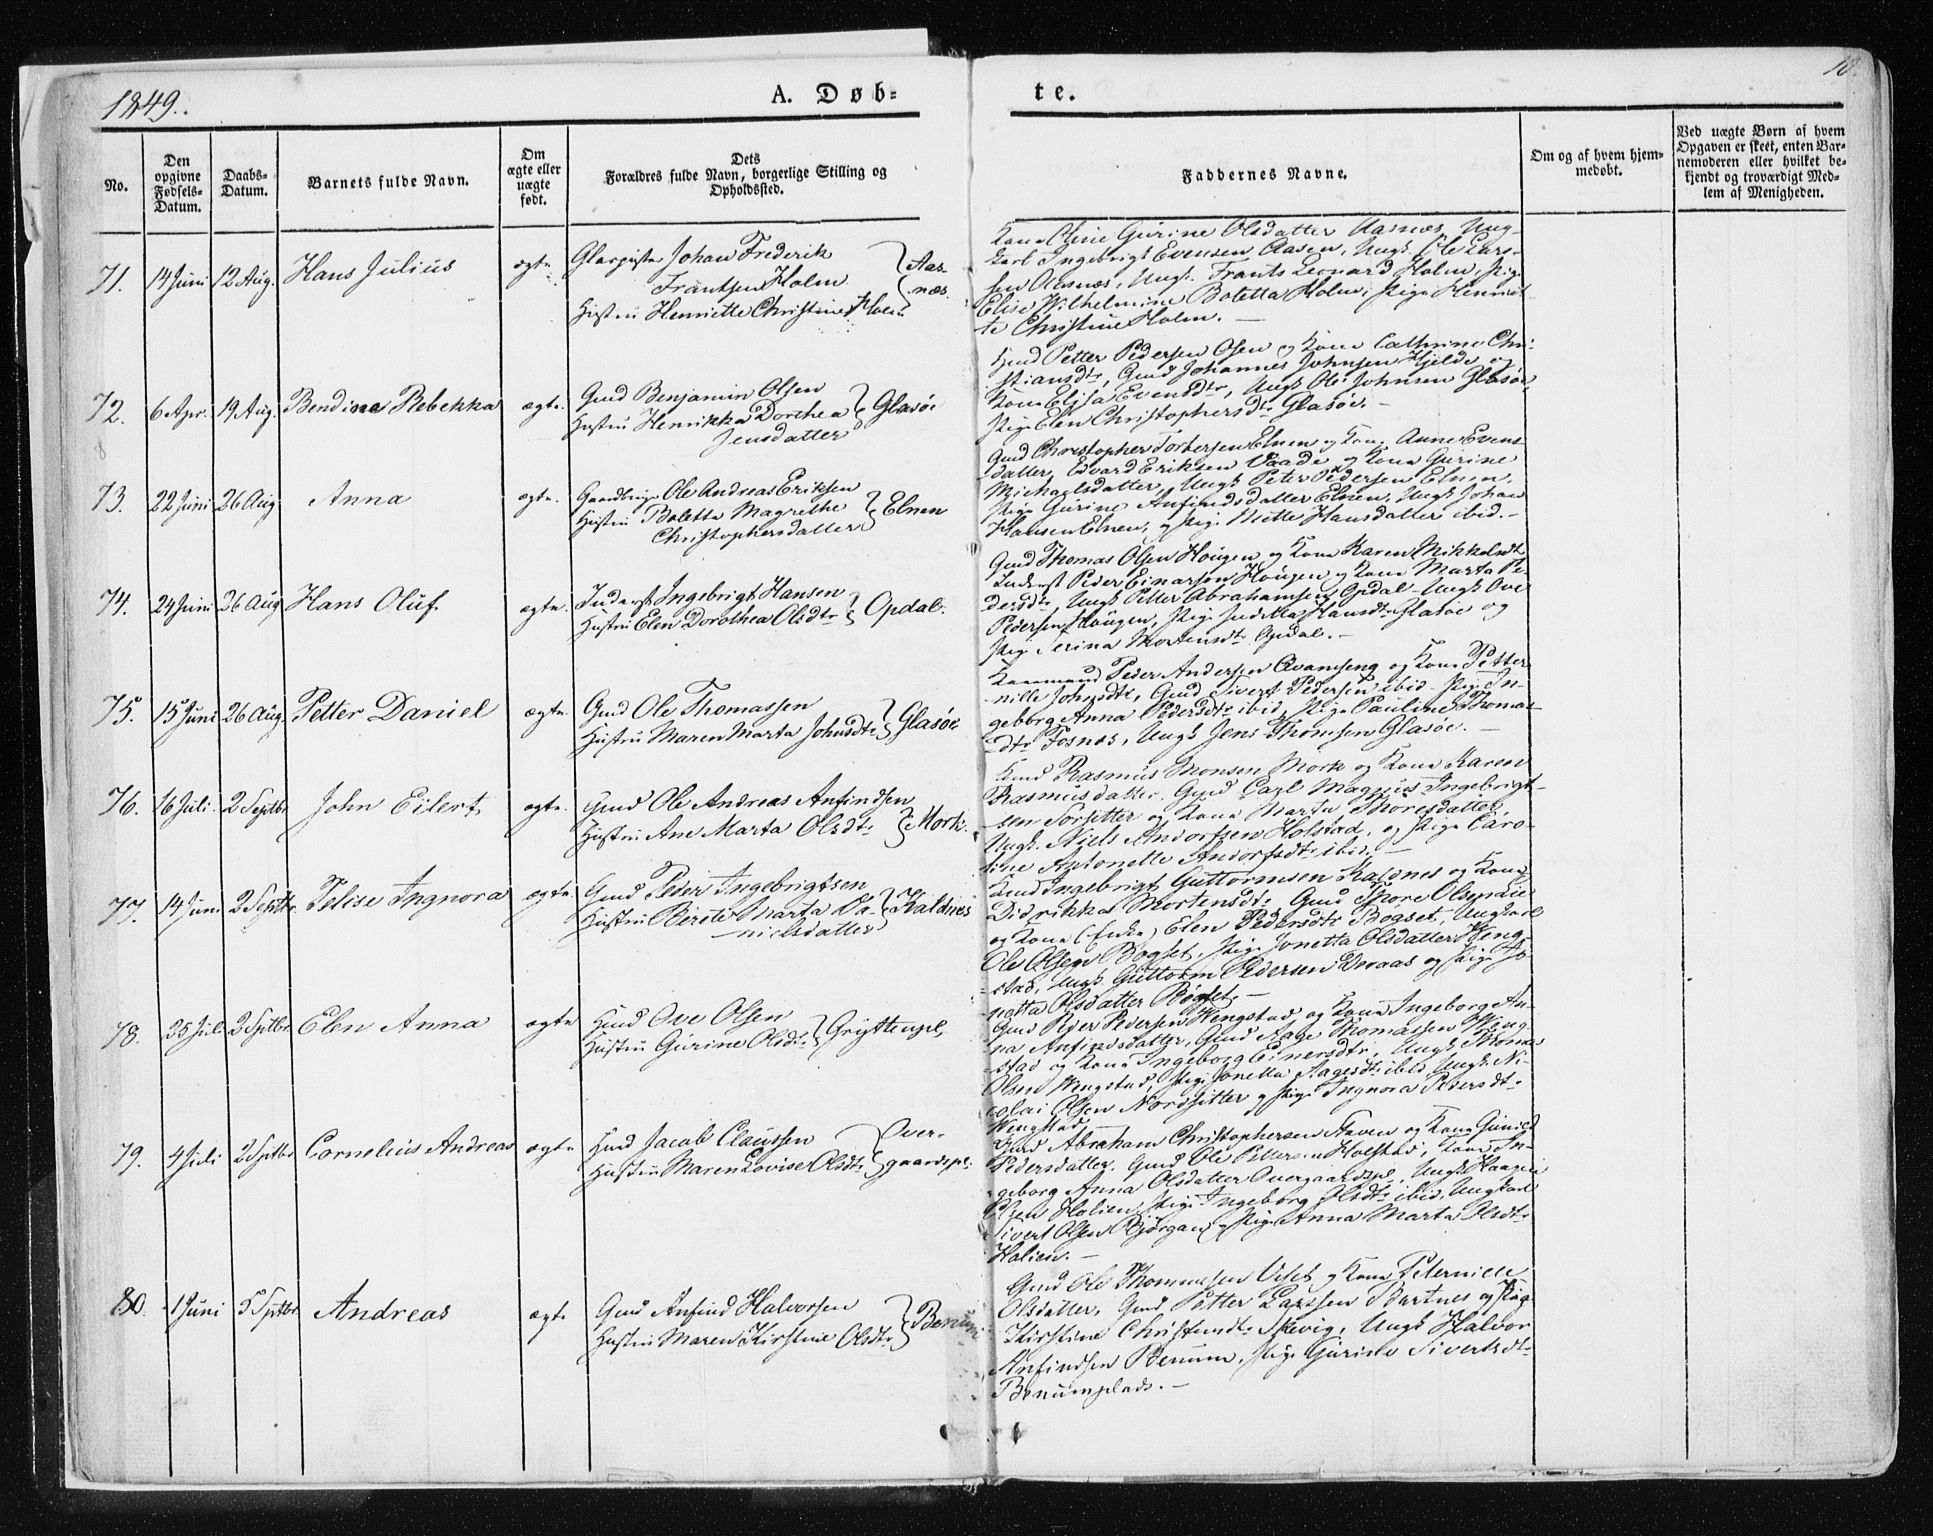 1849.
A. Døb-
te.
10.
No.
Den
opgivne
Fødsels-
Datum.
Daabs-
Datum.
Barnets fulde Navn.
Om
ægte eller
uægte
født.
Dets
Forældres fulde Navn, borgerlige Stilling og
Opholdssted.
Faddernes Navne.
Om og af hvem hjem-
medøbt.
Ved uægte Børn af hvem
Opgaven er skeet, enten Bar-
nemoderen eller hvilket be-
kjendt og troværdigt Med-
lem af Menigheden.
71. 14 Juni 12 Aug. Hans Julius ægte
Johan Frederik
Frantsen Holm
Hustru Henriette Christine Holm
Aas-
næs.
Kone Oline Gurine Olsdatter Aasnæs, Ung-
karl Ingebrigt Evensen Aasen, Ungk. Ole Lars-
sen Aasnæs, Ungk. Frants Leonard Holm, Pige
Elise Wilhelmine Boletta Holm, Pige Henriet-
te Christine Holm.
72. 6 Apr. 19 Aug. Bendine Rebekka ægte.
Gmd Benjamin Olsen
Hustru Henrikka Dorthea
Jensdatter
Glasøe
Petter Pedersen Osen og Kone Cathrine Chri-
stiansdtr, Gmd Johannes Johnsen Hjelde og
Kone Elisa Evensdtr, Ungk Ole Johnsen Glasøe,
Pige Elen Christophersdtr Glasøe.
73. 22 Juni 26 Aug Anna ægte.
Gaardbrugr Ole Andreas Eriksen
Hustru Boletta Magrethe
Christophersdatter
Elnen
Gmd Christopher Torbersen Elnen og Kone Anne Evens-
datter, Edvard Eriksen Vaade og Kone Gurine
Michaelsdatter, Ungk Peter Pedersen Elnen,
Pige Gurine Anfindsdatter Elnen, Ungk Johan
Hansen Elnen, og Pige Mette Hansdatter ibid.
74. 24 Juni 26 Aug Hans Oluf ægte.
Inderst Ingebrigt Hansen
Hustru Elen Dorothea Olsdtr
Opdal.
Gmd Thomas Olsen Hougen og Kone Karen Mikkelsdt
Inderst Peder Einarsen Hougen og Kone Marta Pe-
dersdtr, Ungk Petter Abrahamsen Opdal, Ungk Ove
Pedersen Hougen, Pige Hansdtr Glasøe og
Pige Serina Mortensdtr Opdal.
75. 15 Juni 26 Aug. Petter Daniel ægte.
Gmd Ole Thomassen
Hustru Maren Marta Johnsdtr
Glasøe
Peder Andersen Qvamseng og Kone Petter-
nille Johnsdtr, Gmd Sivert Pedersen ibid, Pige In-
geborg Anna Pedersdtr ibid, Pige Pauline Thomas-
dtr Fosnes, Ungk Jens Thomsen Glasøe.
76. 16 Juli. 2 Septbr John Eilert ægte.
Gmd Ole Andreas Anfindsen
Hustru Ane Marta Olsdtr
Mork.
Gmd Rasmus Monsen Mork og Kone Karen
Rasmusdatter, Gmd Carl Magnus Ingebrigt-
sen Sørsetter og Kone Marta Thoresdatter
Ungk. Niels Andorfsen Holstad, og Pige Caro-
line Antonette Andorfsdtr ibid.
77. 14 Juni 2 Septbr. Felise Ingnora ægte
Gmd Peder Ingebrigtsen
Hustru Berete Marta Da-
nielsdatter
Kaldnes
Gmd Ingebrigt Guttormsen Kaldnes og Kone
Didrikka Mortensdtr, Gmd Thore Olsen
og Kone (Enke) Elen Pedersdtr Bogset, Ungkarl
Ole Olsen Bogset, Pige Jonetta Olsdatter Weng-
stad, Ungk. Guttorm Pedersen Deraas og Pige Jo-
netta Olsdatter Bogset.
78. 25 Juli 2 Sptbr. Elen Anna ægte
Hmd Ove Olsen
Hustru Gurine Olsdtr
Gryttenpl.
Gmd Peder Pedersen Wengstad og Kone Ingeborg An-
na Anfindsdatter, Gmd Aage Thomassen Weng-
stad og Kone Ingeborg Einersdtr, Ungk. Thomas
Olsen Wengstad, Pige Jonetta Aagesdtr ibid, Ungk. Ni-
colai Olsen Nordsitter og Pige Ingnora Pedersdtr
Wengstad.
79. 4 Juli 2 Sptbr Cornelius Andreas ægte
Hmd Jacob Claussen
Hustru Maren Lovise Olsdtr
Over-
gaardspl.
Gmd Abraham Christophersen Staven og Kone Gunild
Pedersdatter, Gmd Ole Pettersen Holstad, Kone In-
geborg Anna Olsdatter Overgaardspl, Ungk Haagen
Olsen Halien, Pige Ingeborg Olsdtr ibid, Ungkarl
Sivert Olsen Bjørgan og Pige Anna Marta Olsdtr
Halien.
80. 1 Juni 5 Sptbr. Andreas ægte
Gmd Anfind Halvorsen
Hustru Maren Kirstine Olsdtr
Benum
Gmd Ole Thommesen Veset og Kone Peternille
Olsdatter, Gmd Petter Larssen Bartnes og Pige
Kirstine Christensdtr Skevig, Ungk Halvor
Anfindsen Benum, Pige Gurine Sivertsdtr
Benumplads.